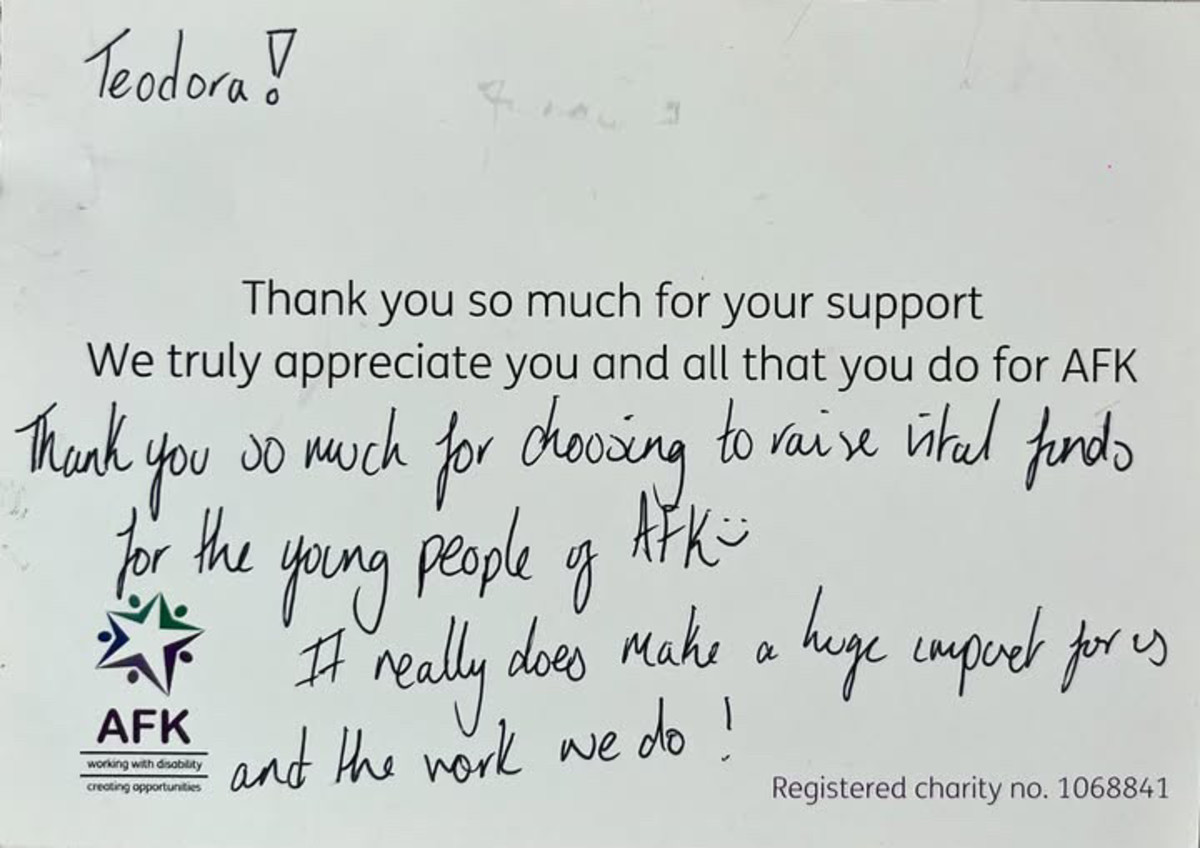 Teodora!
Thank you so much for your support
We truly appreciate you and all that you do for AFK
Thank you so much for choosing to raise vital funds
for the young people of AFK :)
It really does make a huge impact for us
and the work we do!
AFK
working with disability
creating opportunities
Registered charity no. 1068841